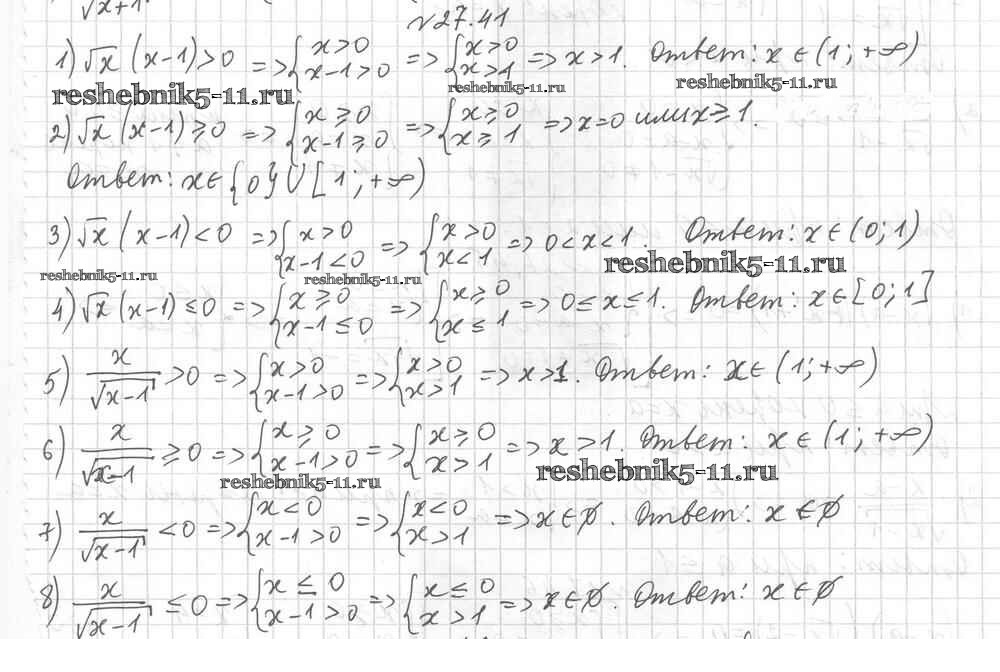 √x+1
№27.41
1) √x (x-1)>0 => {x>0 x-1>0 => {x>0 x>1 => x>1. Ответ: x∈(1;+∞)
reshebnik5-11.ru reshebnik5-11.ru reshebnik5-11.ru
2) √x (x-1)≥0 => {x≥0 x-1≥0 => {x≥0 x≥1 => x=0 или x≥1.
Ответ: x∈{0}U[1;+∞)
3) √x (x-1)<0 => {x>0 x-1<0 => {x>0 x<1 => 0<x<1. Ответ: x∈(0;1)
reshebnik5-11.ru reshebnik5-11.ru reshebnik5-11.ru
4) √x (x-1)≤0 => {x≥0 x-1≤0 => {x≥0 x≤1 => 0≤x≤1. Ответ: x∈[0;1]
5) x/√x-1 >0 => {x>0 x-1>0 => {x>0 x>1 => x>1. Ответ: x∈(1;+∞)
6) x/√x-1 ≥0 => {x≥0 x-1>0 => {x≥0 x>1 => x>1. Ответ: x∈(1;+∞)
reshebnik5-11.ru reshebnik5-11.ru
7) x/√x-1 <0 => {x<0 x-1>0 => {x<0 x>1 => x∈∅. Ответ: x∈∅
8) x/√x-1 ≤0 => {x≤0 x-1>0 => {x≤0 x>1 => x∈∅. Ответ: x∈∅